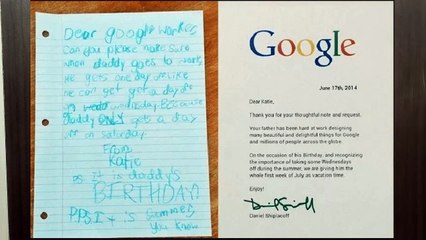 Dear google worker,
Can you please make sure
when daddy goes to work,
he gets one day off. Like
he can get a day off
on wednesday. Because
daddy ONLY gets a day
off on saturday.
From,
Katie
P.S. It is daddy's
BIRTHDAY!
P.P.S. It is summer,
you know
Google
June 17th, 2014
Dear Katie,
Thank you for your thoughtful note and request.
Your father has been hard at work designing
many beautiful and delightful things for Google
and millions of people across the globe.
On the occasion of his Birthday, and recognizing
the importance of taking some Wednesdays
off during the summer, we are giving him the
whole first week of July as vacation time.
Enjoy!
Daniel Shiplacoff